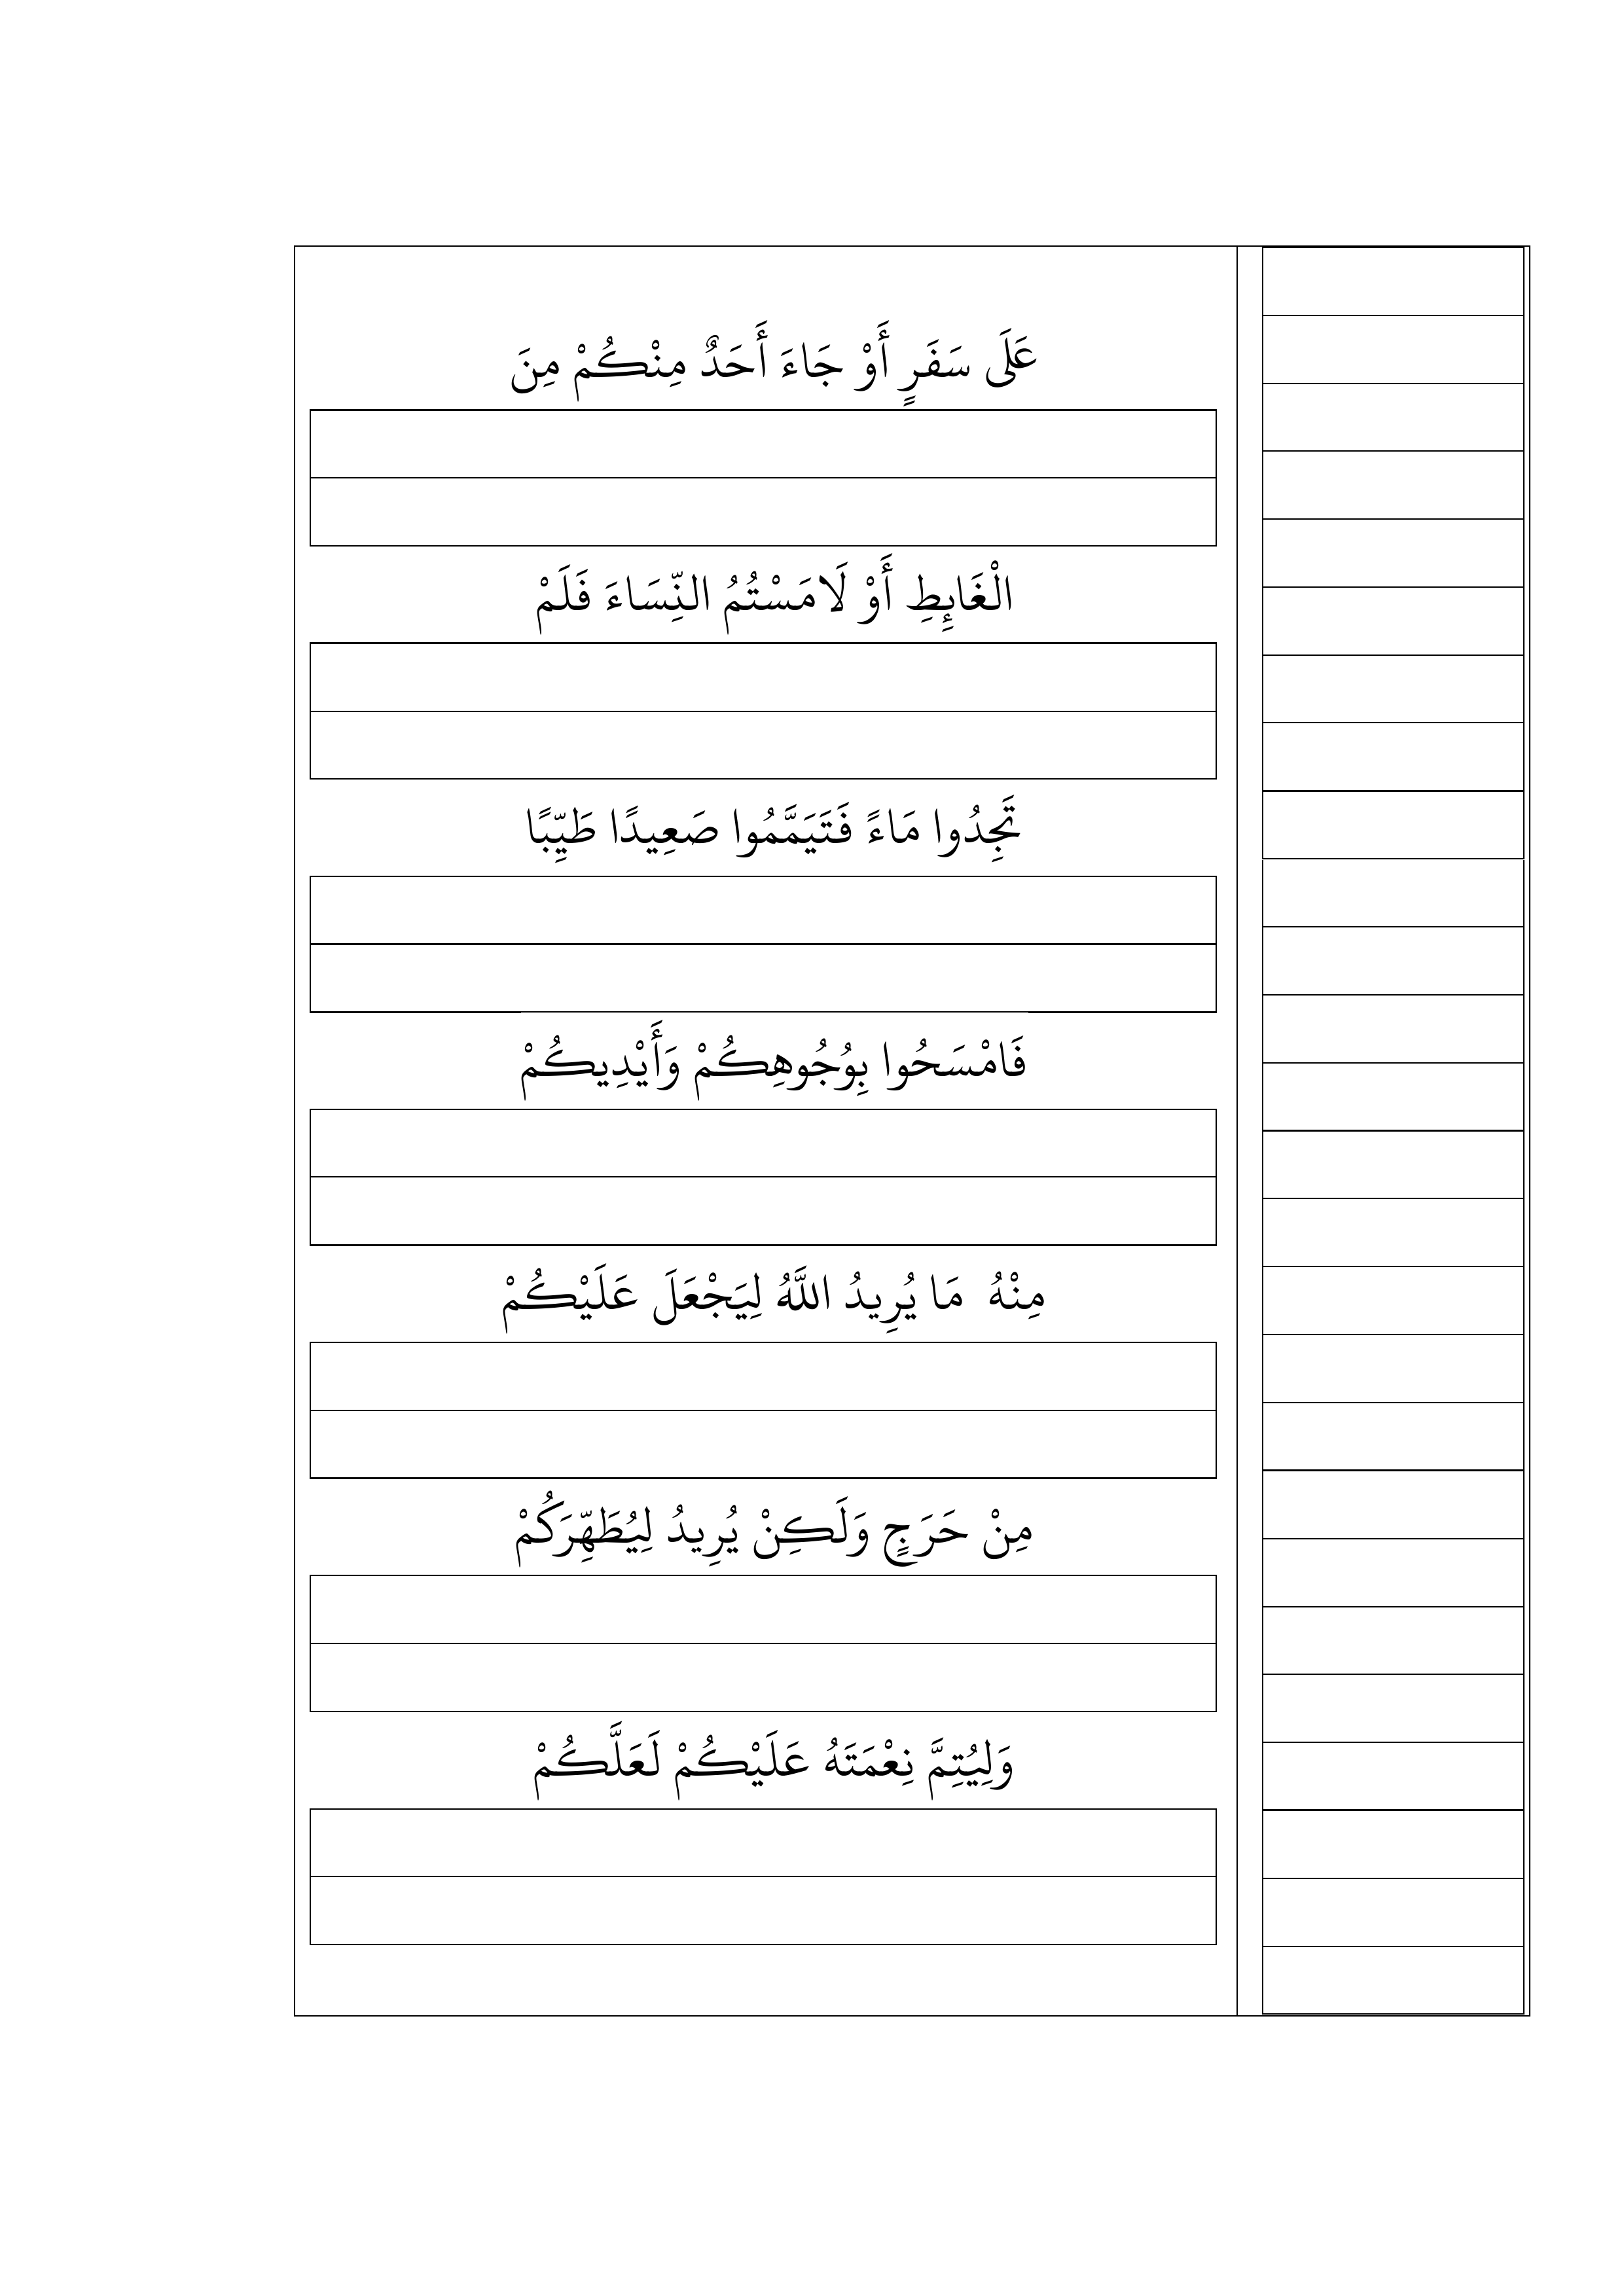 عَلَى سَفَرٍ أَوْ جَاءَ أَحَدٌ مِنْكُمْ مِنَ
الْغَائِطِ أَوْ لَامَسْتُمُ النِّسَاءَ فَلَمْ
تَجِدُوا مَاءً فَتَيَمَّمُوا صَعِيدًا طَيِّبًا
فَامْسَحُوا بِوُجُوهِكُمْ وَأَيْدِيكُمْ
مِنْهُ مَا يُرِيدُ اللَّهُ لِيَجْعَلَ عَلَيْكُمْ
مِنْ حَرَجٍ وَلَكِنْ يُرِيدُ لِيُطَهِّرَكُمْ
وَلِيُتِمَّ نِعْمَتَهُ عَلَيْكُمْ لَعَلَّكُمْ